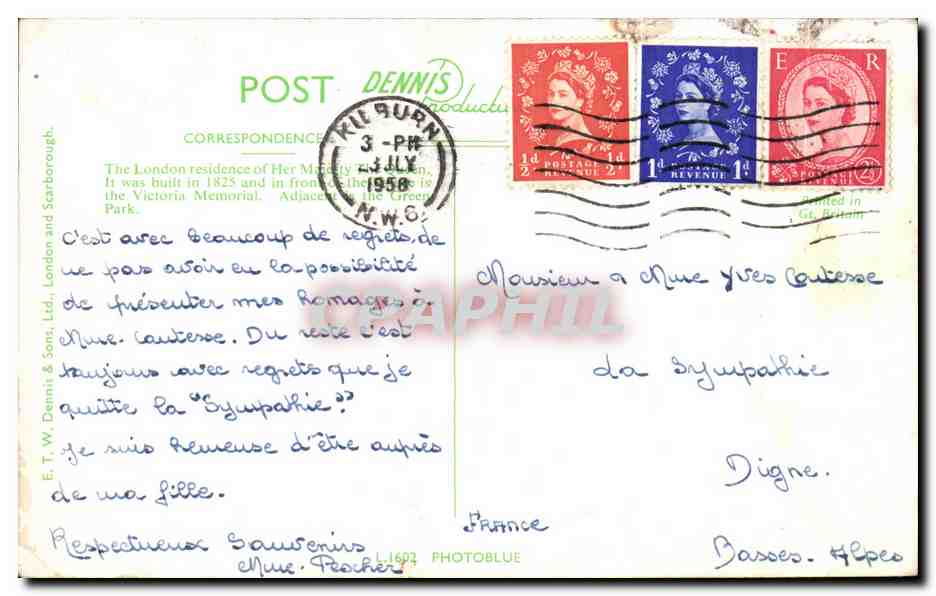 POST
DENNIS
Productions
CORRESPONDENCE
The London residence of Her Majesty The Queen,
It was built in 1825 and in front of the is
the Victoria Memorial. Adjacent the Green
Park.
E. T. W. Dennis & Sons, Ltd., London and Scarborough.
KILBURN
3 - PM
3 JLY
1958
N.W.6.
½d ½d
POSTAGE
REVENUE
1d 1d
POSTAGE
REVENUE
E R
POSTAGE
REVENUE
2½d
Printed in
Gt. Britain
C'est avec beaucoup de regrets, de
ne pas avoir eu la possibilité
de présenter mes homages à
Mme. Coutesse. Du reste c'est
toujours avec regrets que je
quitte la "Sympathie."
Je suis heureuse d'être auprès
de ma fille.
Respectueux Souvenirs
Mme. Pescher
Monsieur & Mme Yves Coutesse
La Sympathie
Digne.
FRANCE
Basses-Alpes
L.1602 PHOTOBLUE
CPAPHIL